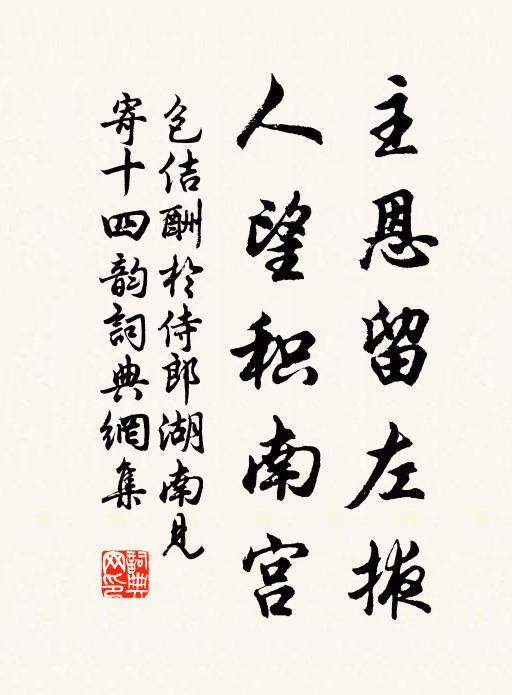 主恩留左掖
人望积南宫
包佶酬於侍郎湖南见
寄十四韵詞典網集
詞典网印